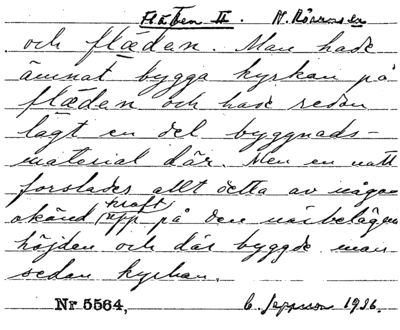 Fläben II. N. Rörum sn
och fläden. Man hade
ämnat bygga kyrkan på
fläden och hade redan
lagt en del byggnads-
material där. Men en natt
forslades allt detta av någon
okänd kraft upp på den närbelägna
höjden och där byggde man
sedan kyrkan.
Nr 5564, C. Jeppsson 1926.